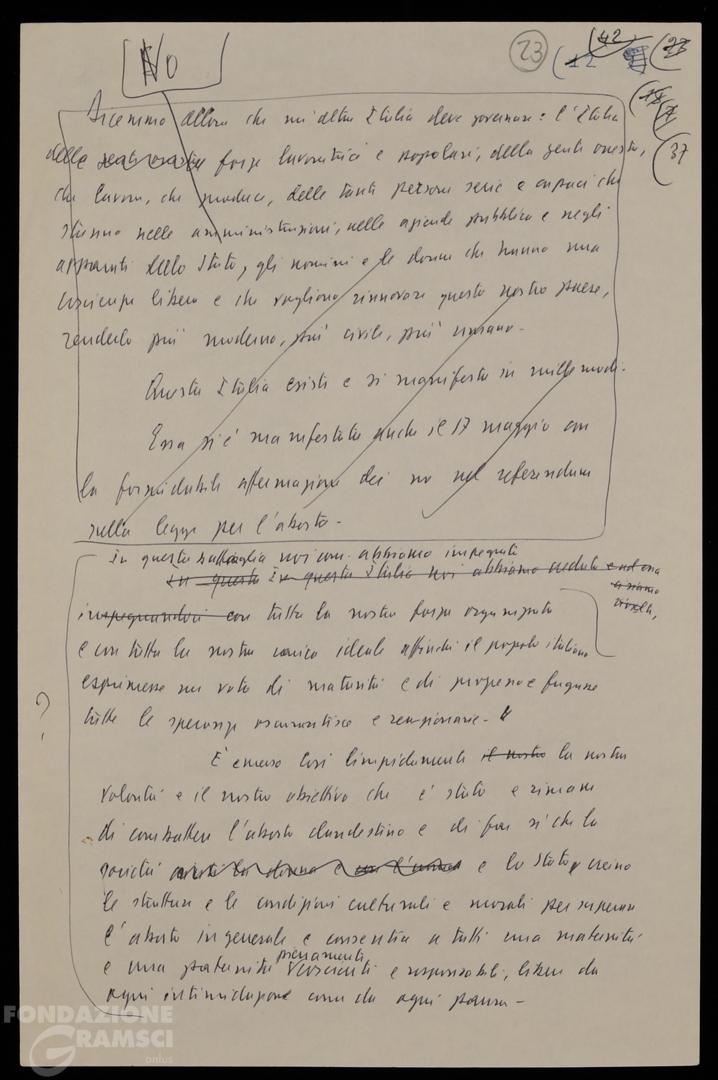 No
23
(42
(12
(23
37
Dicemmo allora che un'altra Italia deve governare: l'Italia
delle forze lavoratrici e popolari, della gente onesta,
che lavora, che produce, delle tante persone serie e capaci che
stanno nelle amministrazioni, nelle aziende pubbliche e negli
apparati dello Stato, gli uomini e le donne che hanno una
coscienza libera e che vogliono rinnovare questo nostro paese,
renderlo più moderno, più civile, più umano.
Questa Italia esiste e si manifesta in mille modi.
Essa si è manifestata anche il 17 maggio con
la formidabile affermazione dei no nel referendum
sulla legge per l'aborto.
In questa battaglia noi com. abbiamo impegnato
In questa In questa Italia noi abbiamo veduto e ad essa
ci siamo
rivolti,
impegnandoci con tutta la nostra forza organizzata
e con tutta la nostra carica ideale affinché il popolo italiano
esprimesse un voto di maturità e di progresso e fugasse
tutte le speranze oscurantiste e reazionarie. "
?
È emerso così limpidamente il nostro la nostra
volontà e il nostro obiettivo che è stato e rimane
di combattere l'aborto clandestino e di far sì che la
società e lo Stato creino
le strutture e le condizioni culturali e morali per superare
l'aborto in generale e consentire a tutti una maternità
pienamente
e una paternità coscienti e responsabili, libere da
ogni intimidazione come da ogni paura.
FONDAZIONE
GRAMSCI
onlus